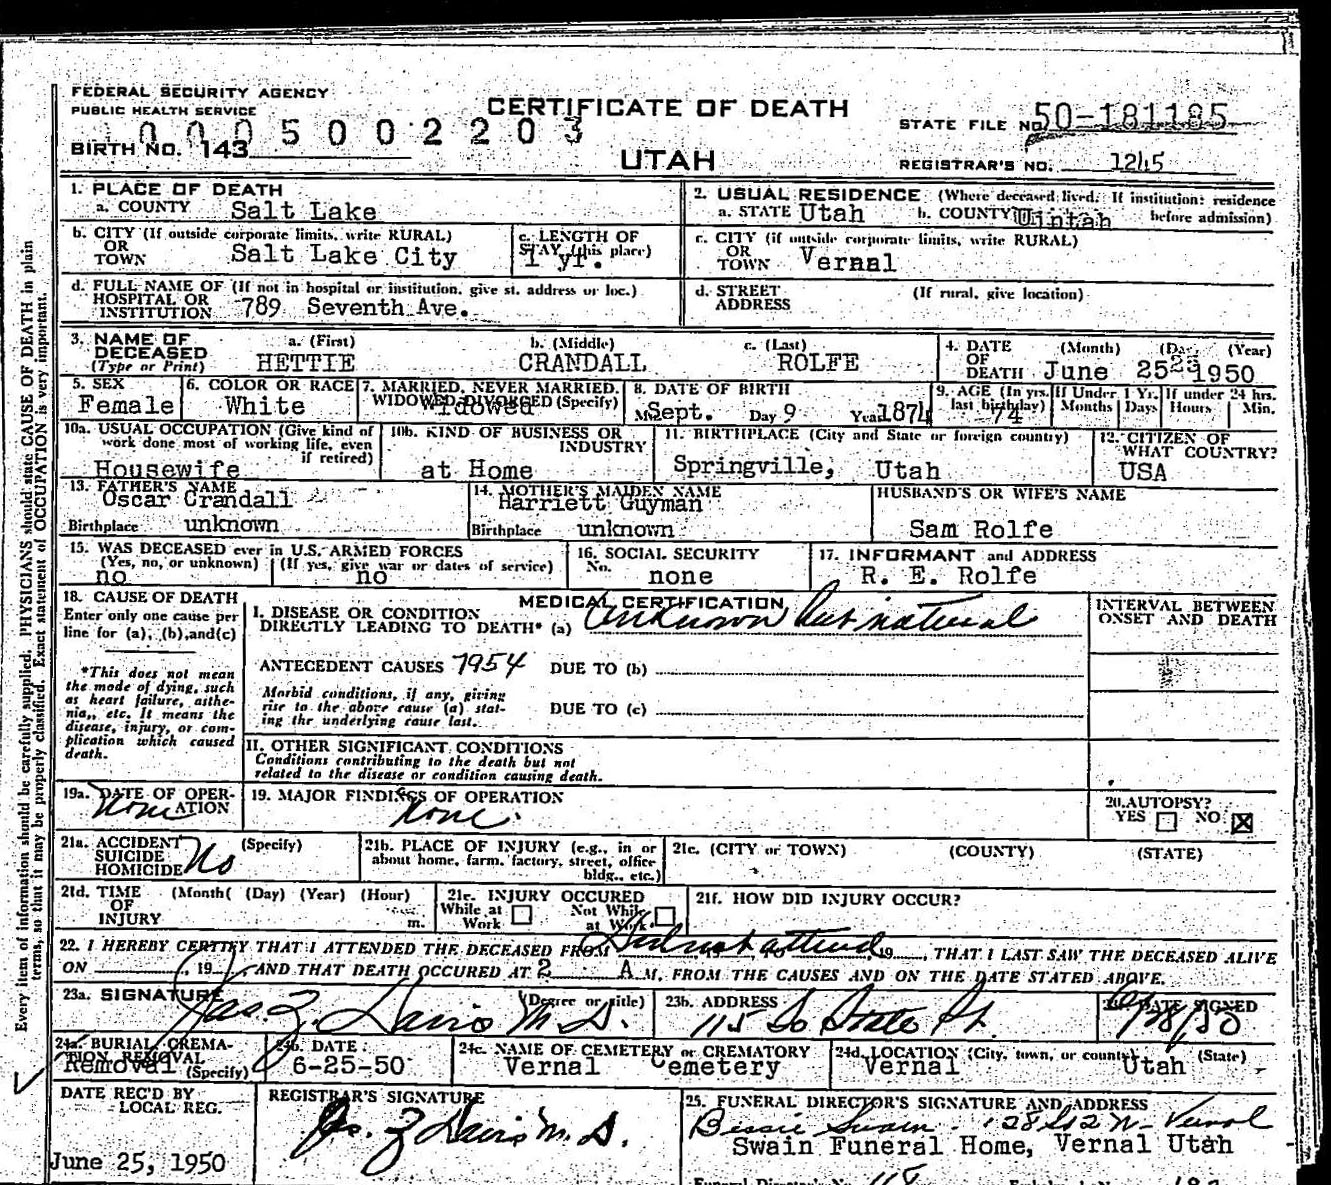 FEDERAL SECURITY AGENCY
PUBLIC HEALTH SERVICE
CERTIFICATE OF DEATH
STATE FILE NO. 50-181185
0005002203
BIRTH NO. 143
UTAH
REGISTRAR'S NO. 1245
1. PLACE OF DEATH
a. COUNTY Salt Lake
2. USUAL RESIDENCE (Where deceased lived. If institution: residence before admission)
a. STATE Utah b. COUNTY Uintah
b. CITY (If outside corporate limits, write RURAL)
OR
TOWN Salt Lake City
c. LENGTH OF
STAY (this place)
1 yr.
c. CITY (if outside corporate limits, write RURAL)
OR
TOWN Vernal
d. FULL NAME OF (If not in hospital or institution, give st. address or loc.)
HOSPITAL OR
INSTITUTION 789 Seventh Ave.
d. STREET (If rural, give location)
ADDRESS
3. NAME OF
DECEASED
(Type or Print)
a. (First) b. (Middle) c. (Last)
HETTIE CRANDALL ROLFE
4. DATE (Month) (Day) (Year)
OF
DEATH June 25 23 1950
5. SEX
Female
6. COLOR OR RACE
White
7. MARRIED, NEVER MARRIED,
WIDOWED, DIVORCED (Specify)
Widowed
8. DATE OF BIRTH
M Sept. Day 9 Year 1874
9. AGE (In yrs. last birthday) 74
If Under 1 Yr. Months Days
If under 24 hrs. Hours Min.
10a. USUAL OCCUPATION (Give kind of
work done most of working life, even
if retired)
Housewife
10b. KIND OF BUSINESS OR
INDUSTRY
at Home
11. BIRTHPLACE (City and State or foreign country)
Springville, Utah
12. CITIZEN OF
WHAT COUNTRY?
USA
13. FATHER'S NAME
Oscar Crandall
Birthplace unknown
14. MOTHER'S MAIDEN NAME
Harriett Guyman
Birthplace unknown
HUSBAND'S OR WIFE'S NAME
Sam Rolfe
15. WAS DECEASED ever in U.S. ARMED FORCES
(Yes, no, or unknown) (If yes, give war or dates of service)
no no
16. SOCIAL SECURITY
No.
none
17. INFORMANT and ADDRESS
R. E. Rolfe
18. CAUSE OF DEATH
Enter only one cause per
line for (a), (b), and (c)
*This does not mean
the mode of dying, such
as heart failure, asthe-
nia, etc. It means the
disease, injury, or com-
plication which caused
death.
MEDICAL CERTIFICATION
I. DISEASE OR CONDITION
DIRECTLY LEADING TO DEATH* (a) Unknown but natural
ANTECEDENT CAUSES 7954 DUE TO (b)
Morbid conditions, if any, giving
rise to the above cause (a) stat-
ing the underlying cause last.
DUE TO (c)
II. OTHER SIGNIFICANT CONDITIONS
Conditions contributing to the death but not
related to the disease or condition causing death.
INTERVAL BETWEEN
ONSET AND DEATH
19a. DATE OF OPER-
ATION
None
19. MAJOR FINDINGS OF OPERATION
None.
20. AUTOPSY?
YES NO X
21a. ACCIDENT (Specify)
SUICIDE
HOMICIDE No
21b. PLACE OF INJURY (e.g., in or
about home, farm, factory, street, office
bldg., etc.)
21c. (CITY or TOWN) (COUNTY) (STATE)
21d. TIME (Month( (Day) (Year) (Hour)
OF
INJURY m.
21e. INJURY OCCURED
While at Work Not While at Work
21f. HOW DID INJURY OCCUR?
22. I HEREBY CERTIFY THAT I ATTENDED THE DECEASED FROM Did not attend 19 , THAT I LAST SAW THE DECEASED ALIVE
ON , 19 , AND THAT DEATH OCCURED AT 2 A M, FROM THE CAUSES AND ON THE DATE STATED ABOVE.
23a. SIGNATURE (Degree or title)
Jas Z. Davis M.D.
23b. ADDRESS
115 So State St.
DATE SIGNED
24a. BURIAL, CREMA-
TION, REMOVAL
Removal (Specify)
24b. DATE
6-25-50
24c. NAME OF CEMETERY or CREMATORY
Vernal Cemetery
24d. LOCATION (City, town, or county) (State)
Vernal Utah
DATE REC'D BY
LOCAL REG.
June 25, 1950
REGISTRAR'S SIGNATURE
Jas. Z Davis M.D.
25. FUNERAL DIRECTOR'S SIGNATURE AND ADDRESS
Bessie Swain Vernal
Swain Funeral Home, Vernal Utah
Every item of information should be carefully supplied. PHYSICIANS should state CAUSE OF DEATH in plain
terms, so that it may be properly classified. Exact statement of OCCUPATION is very important.